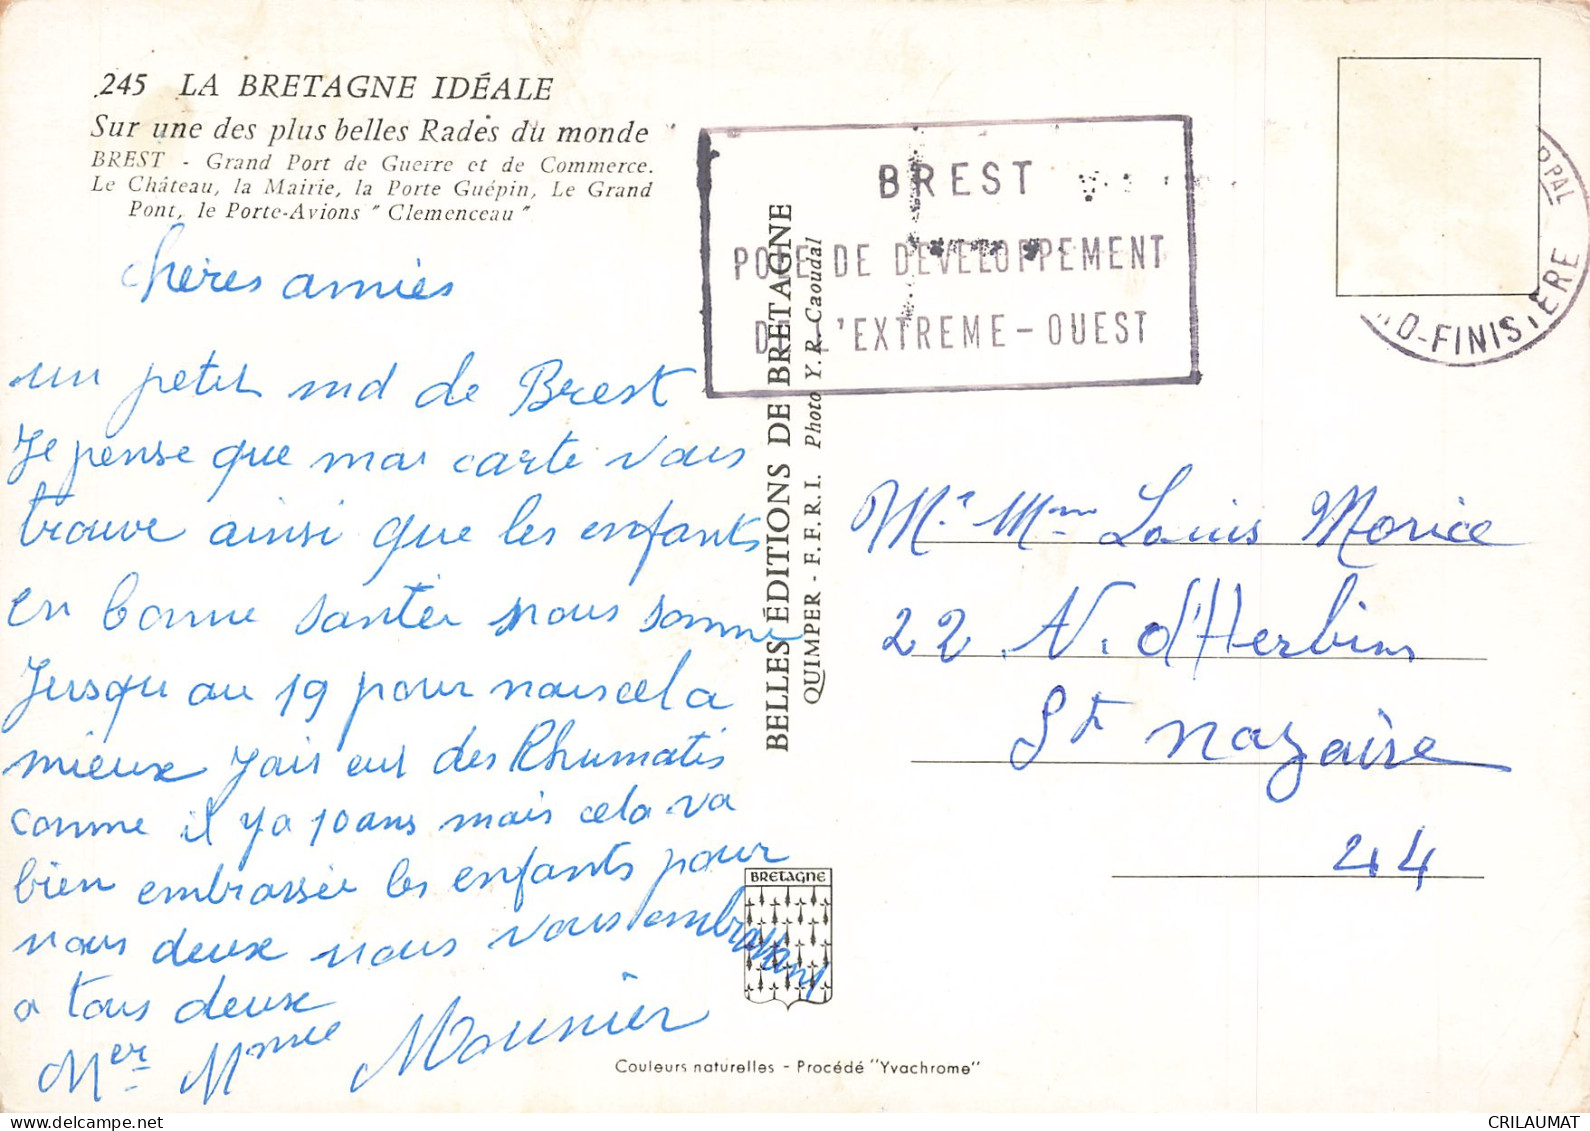 245 LA BRETAGNE IDÉALE
Sur une des plus belles Rades du monde
BREST - Grand Port de Guerre et de Commerce.
Le Château, la Mairie, la Porte Guépin, Le Grand
Pont, le Porte-Avions "Clemenceau"
chères amies
un petit md de Brest
Je pense que ma carte vous
trouve ainsi que les enfants
en bonne santée nous somme
Jusqu au 19 pour nous cela
mieux Jais eut des Rhumatis
comme il y a 10 ans mais cela va
bien embrassée les enfants pour
nous deux nous vous embrassons
a tous deux
Mer Mme Mounier
BREST
POLE DE DEVELOPPEMENT
DE L'EXTREME-OUEST
BELLES ÉDITIONS DE BRETAGNE
QUIMPER - F.F.R.I. Photo Y.R. Caoudal
BRETAGNE
Couleurs naturelles - Procédé "Yvachrome"
PPAL
D-FINISTERE
Mr Mme Louis Morice
22 N. d'Herbins
St nazaire
44
CRILAUMAT